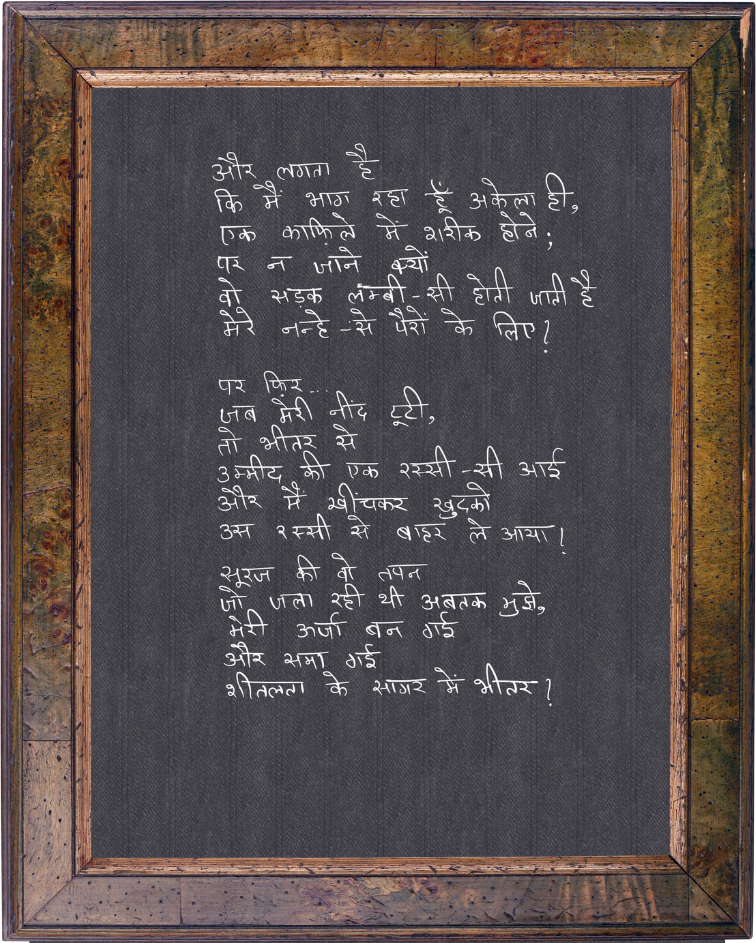 और लगता है
कि मैं भाग रहा हूँ अकेला ही,
एक काफ़िले में शरीक होने;
पर न जाने क्यों
वो सड़क लम्बी-सी होती जाती है
मेरे नन्हे-से पैरों के लिए?
पर फ़िर...
जब मेरी नींद टूटी,
तो भीतर से
उम्मीद की एक रस्सी-सी आई
और मैं खींचकर खुदको
उस रस्सी से बाहर ले आया!
सूरज की वो तपन
जो जला रही थी अबतक मुझे,
मेरी ऊर्जा बन गई
और समा गई
शीतलता के सागर में भीतर?